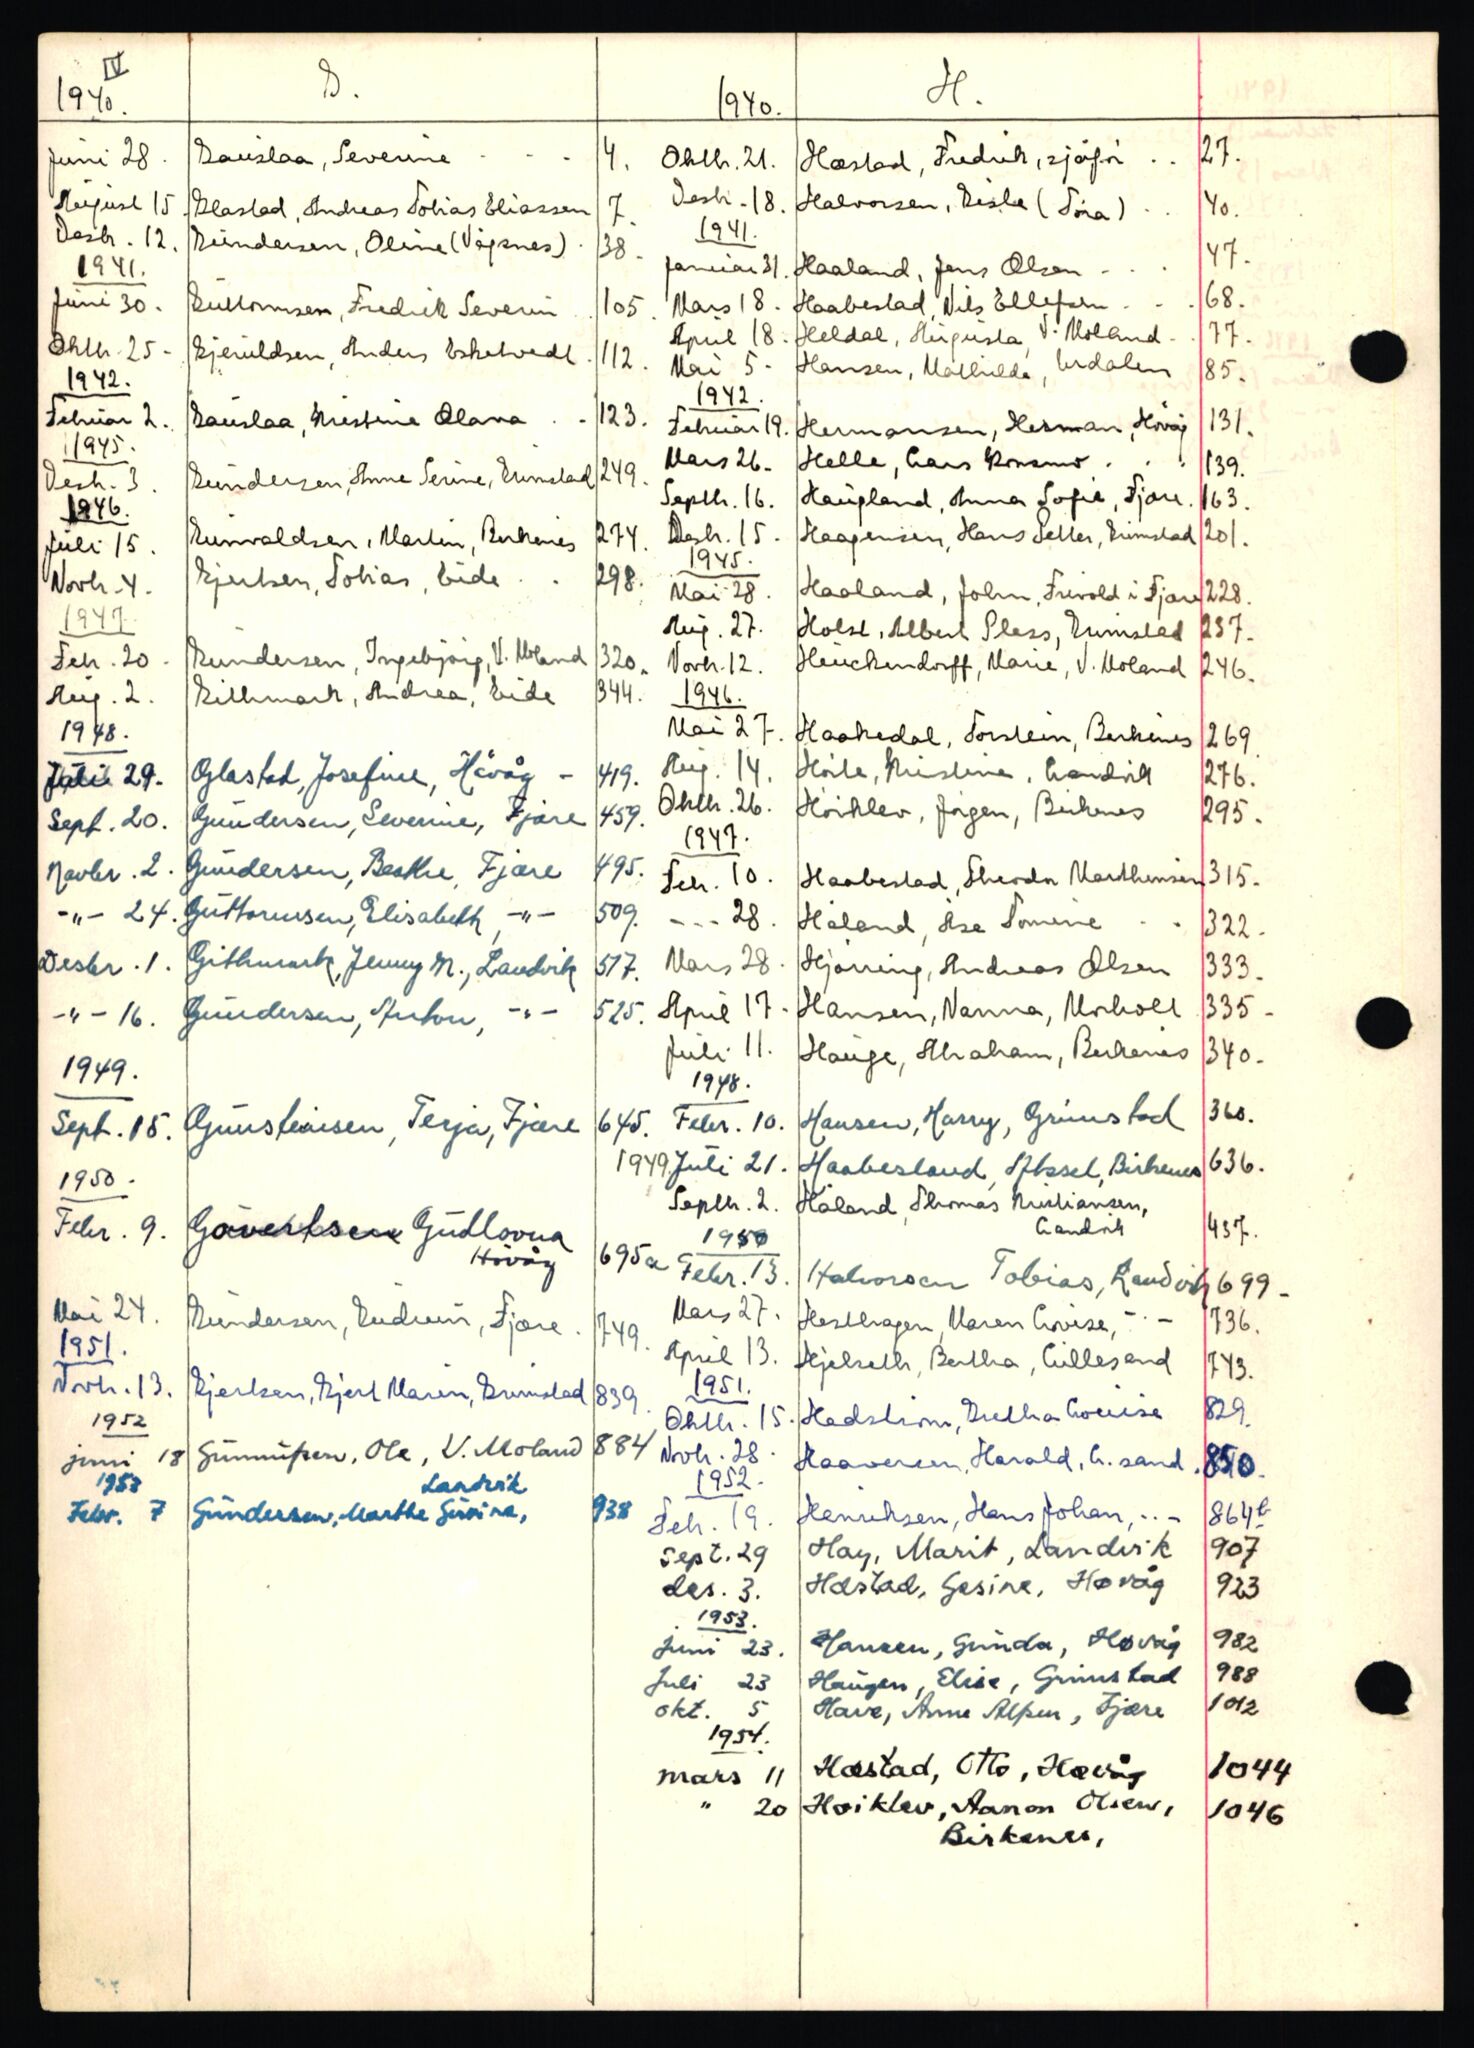 IV
1940.
G.
Juni 28. Gauslaa, Severine - - - 4.
August 15. Glastad, Andreas Tobias Eliassen 7.
Desbr. 12. Gundersen, Oline (Vågsnes) . 38.
1941.
Juni 30. Guttormsen, Fredrik Severin . 105.
Oktb. 25 - Gjeruldsen, Anders Eskelvedt . 112.
1942.
Februar 2. Gauslaa, Kristine Olava . . 123.
1945.
Desb. 3. Gundersen, Anne Serine, Grimstad 249.
1946.
Juli 15. Gunvaldsen, Martin, Birkenes 274.
Novb. 4. Gjertsen, Tobias, Eide . . 298.
1947
Feb. 20. Gundersen, Ingebjörg, V. Moland 320.
Aug. 2. Githmark, Andrea, Eide 344.
1948.
Juli 29. Glastad, Josefine, Hövåg - 419.
Sept. 20. Gundersen, Severine, Fjære 459.
Novbr. 2. Gundersen, Beathe, Fjære 495.
-"- 24. Guttormsen, Elisabeth, -"- 509.
Desbr. 1. Githmark, Jenny M., Landvik 517.
-"- 16. Gundersen, Anton, -"- 525.
1949.
Sept. 15. Gunsteinsen, Terja, Fjære 645.
1950.
Febr. 9. Govertsen Gudlovna
Hövåg 695a
Mai 24. Gundersen, Gudrun, Fjære . 749.
1951.
Novb. 13. Gjertsen, Gjert Marin, Grimstad 839.
1952
juni 18 Gunnufsen, Ole, V. Moland 884
1953 Landvik
Febr. 7 Gundersen, Marthe Gurine, 938
1940.
H.
Oktb. 21. Hæstad, Fredrik, sjåfør . . 27.
Desb. 18. Halvorsen, Gisle (Tora) . . 40.
1941.
Januar 31. Haaland, Jens Olsen - . . 47.
Mars 18. Haabestad, Nils Ellefsen - . . 68.
April 18. Heldal, Augusta, V. Moland - . 77.
Mai 5. Hansen, Mathilde, Urdalen 85.
1942.
Februar 19. Hermansen, Herman, Hövåg 131.
Mars 26. Helle, Lars Konsmo . . . 139.
Septb. 16. Haugland, Anna Sofie, Fjære. 163.
Desb. 15. Haagensen, Hans Petter, Grimstad 201.
1945.
Mai 28. Haaland, John, Frivold i Fjære 228.
Aug. 27. Holst, Albert Pless, Grimstad 237.
Novb. 12. Heuckendorff, Marie, V. Moland 246.
1946.
Mai 27. Haakedal, Torstein, Birkenes 269
Aug. 14. Hörte, Kristine, Landvik 276.
Oktb. 26. Höiklev, Jörgen, Birkenes 295.
1947.
Feb. 10. Haabestad, Theodor Marthensen 315.
- - - 28. Håland, Åse Tomine . . 322.
Mars 28. Hjörring, Andreas Olsen 333.
April 17. Hansen, Nanna, Morholt 335 -
Juli 11. Hauge, Abraham, Birkenes 340.
1948.
Febr. 10. Hansen, Harry, Grimstad 360.
1949. Juli 21. Haabesland, Aksel, Birkenes 636.
Septb. 2. Håland, Thomas Kristiansen,
Landvik 437.
1950
Febr. 13. Halvorsen Tobias, Landvik 699 -
Mars 27. Hesthagen, Maren Lovise, - " - 736.
April 13. Hjelseth, Bertha, Lillesand 743.
1951.
Oktb. 15. Hedström, Gretha Lovise 829.
Novb. 28. Haaversen, Harald, L. sand . 850.
1952.
Feb. 19. Henriksen, Hans Johan, - " - 864b
Sept. 29 Hay, Marit, Landvik 907
des. 3. Hæstad, Gesine, Høvåg 923
1953.
Juni 23. Hansen, Gunda, Høvåg 982
Juli 23 Haugen, Elise, Grimstad 988
okt. 5 Have, Anne Alfsen, Fjære 1012
1954.
mars 11 Hæstad, Otto, Høvåg 1044
" 20 Høiklev, Aanon Olsen, 1046
Birkenes,